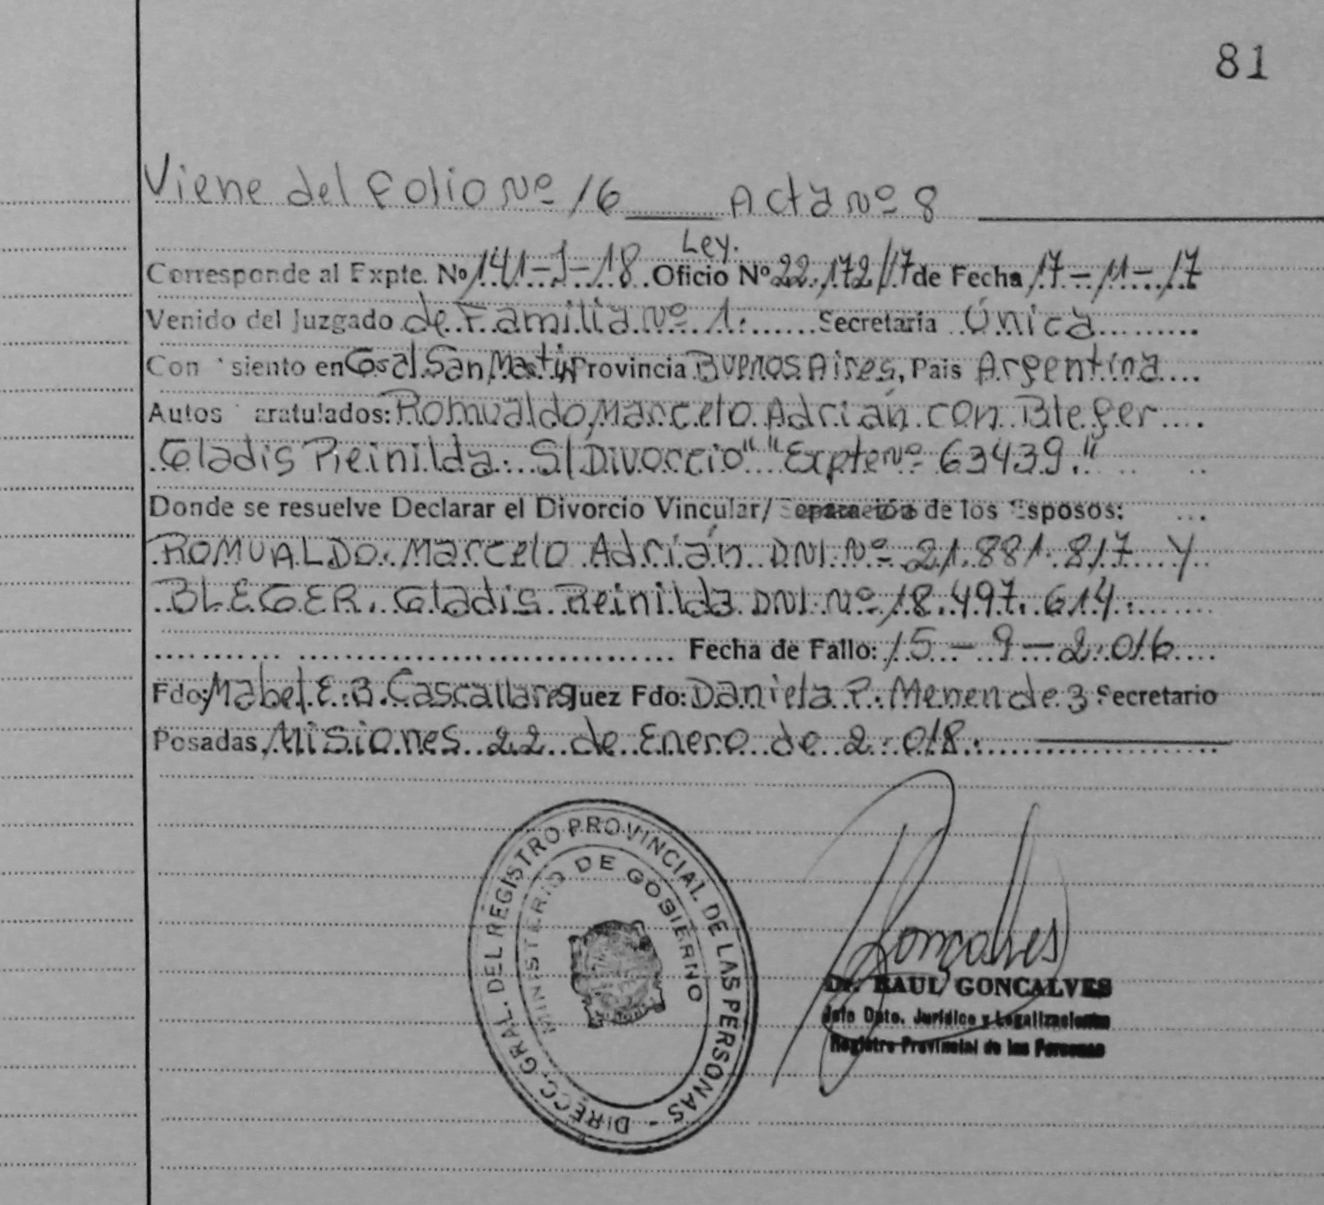 81
Viene del folio Nº 16 Acta Nº 8
Ley.
Corresponde al Expte. Nº 141-J-18 Oficio Nº 22.172/17 de Fecha 17-11-17
Venido del Juzgado de Familia Nº 1. Secretaria Única
Con siento en Gral. San Martín Provincia Buenos Aires, Pais Argentina
Autos aratulados: Romualdo, Marcelo Adrián con Bleger
Gladis Reinilda. S/Divorcio" "Expte Nº 63439."
Donde se resuelve Declarar el Divorcio Vincular/ Separación de los Esposos:
ROMUALDO. Marcelo Adrián DNI. Nº 21.881.817 y
BLEGER. Gladis Reinilda DNI. Nº 18.497.614.
Fecha de Fallo: 15-9-2.016
Fdo: Mabel E. B. Cascallares Juez Fdo: Daniela P. Menendez Secretario
Posadas, Misiones 22 de Enero de 2.018.
DIRECC. GRAL. DEL REGISTRO PROVINCIAL DE LAS PERSONAS -
MINISTERIO DE GOBIERNO
Gonçalves
Dr. RAUL GONCALVES
Jefe Dpto. Jurídico y Legalizaciones
Registro Provincial de las Personas